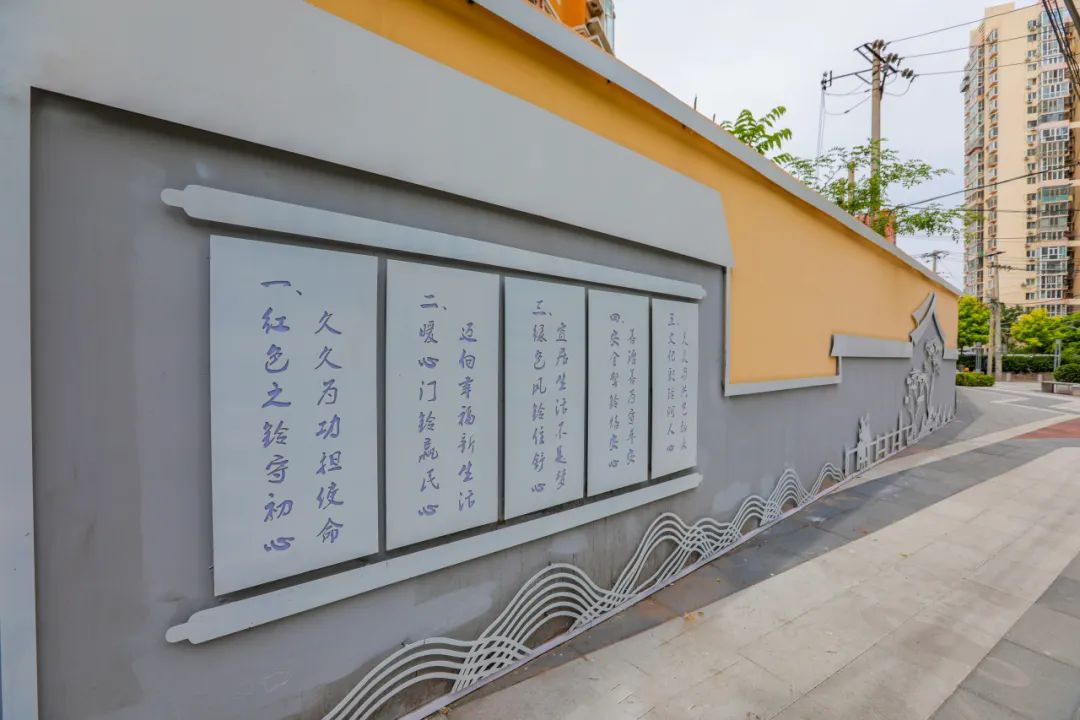 一、红色之铃守初心
久久为功担使命
二、暖心门铃赢民心
迈向幸福新生活
三、绿色风铃住舒心
宜居生活不是梦
四、安全警铃安心
善治善为平安
五、文化驼铃润人心